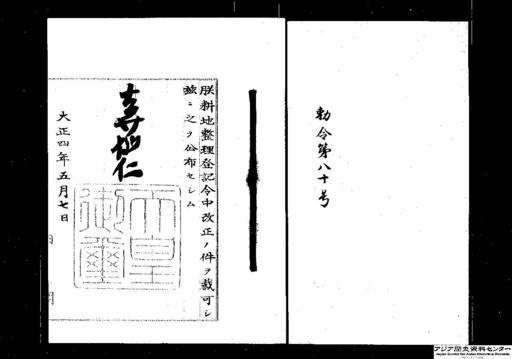 勅令第八十号
朕耕地整理登記令中改正ノ件ヲ裁可シ
玆ニ之ヲ公布セシム
嘉仁
大正四年五月七日
天皇
御璽
アジア歴史資料センター
Japan Center for Asian Historical Records